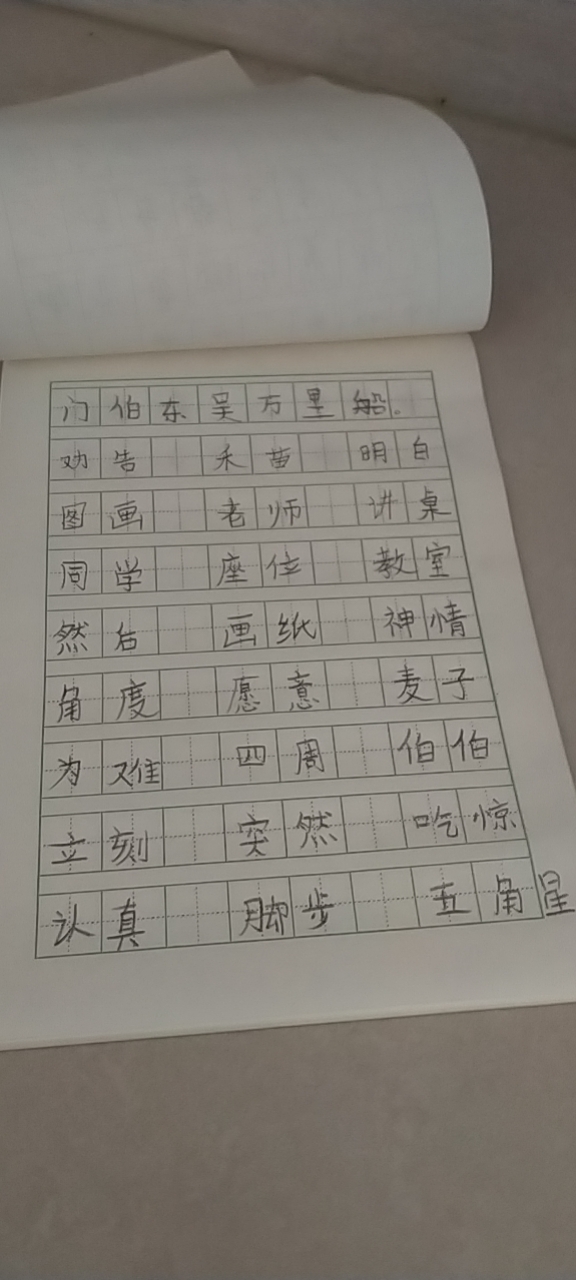 门伯东吴万里船。
劝告 禾苗 明白
图画 老师 讲桌
同学 座位 教室
然后 画纸 神情
角度 愿意 麦子
为难 四周 伯伯
立刻 突然 吃惊
认真 脚步 五角星